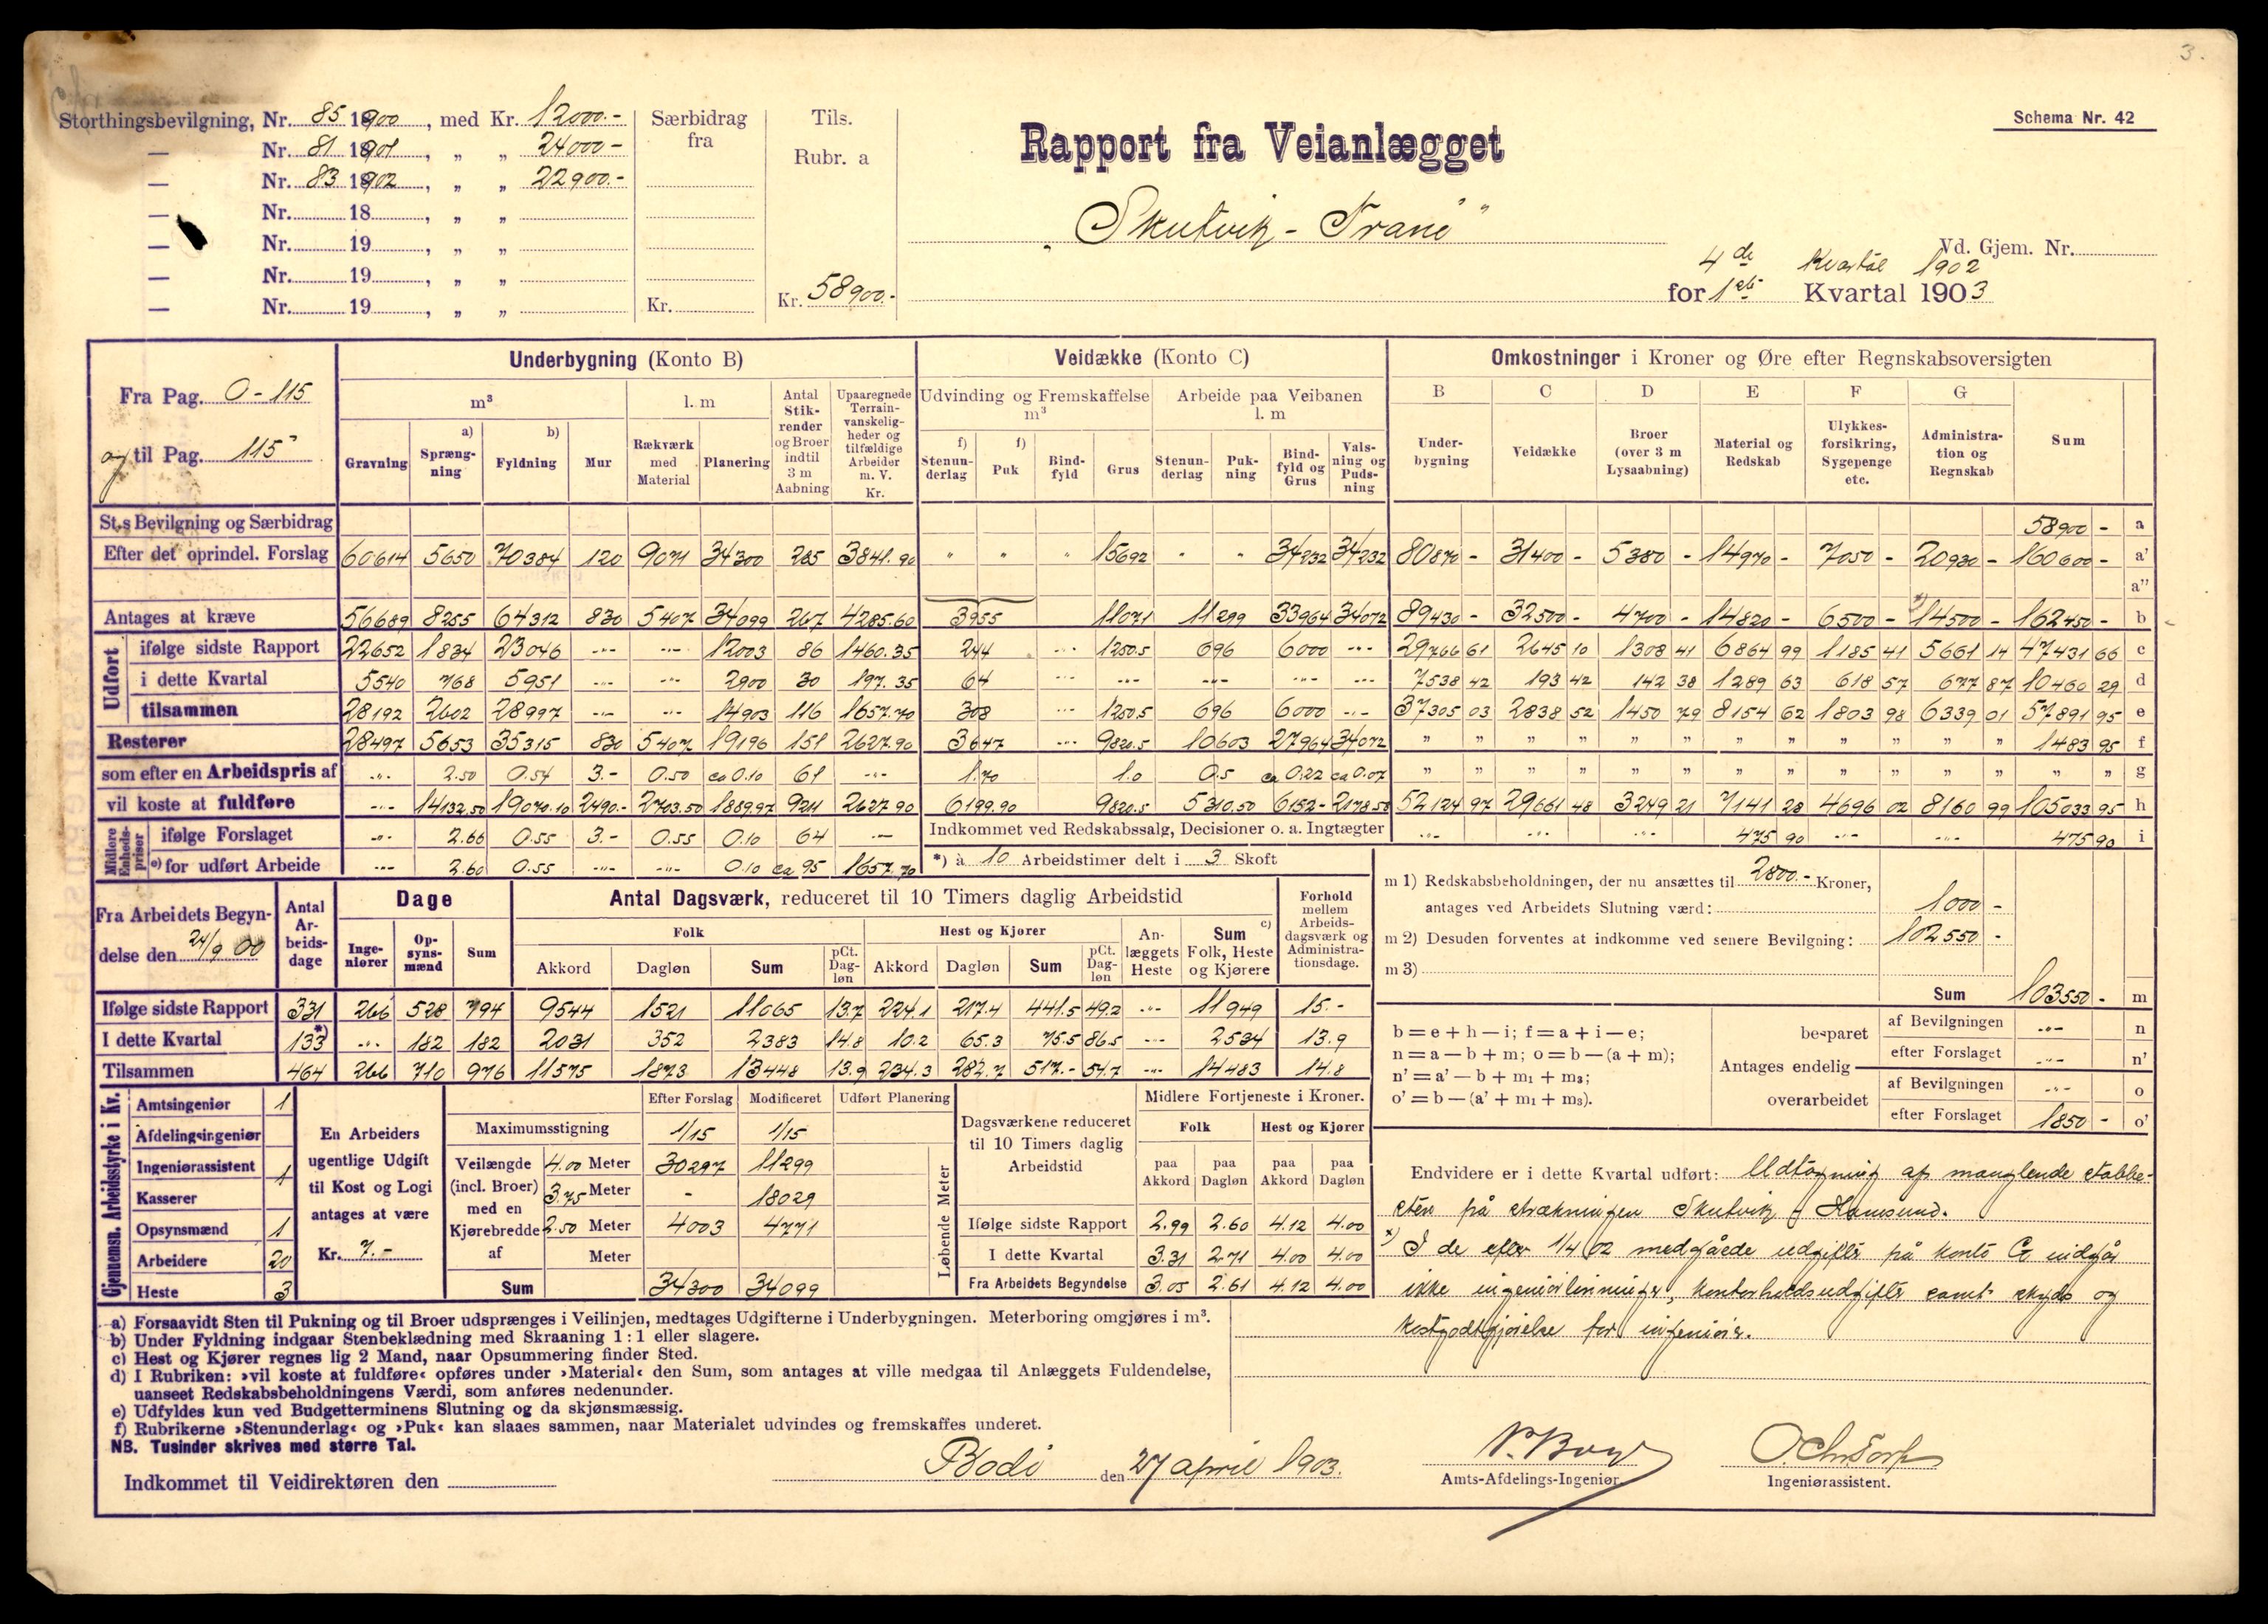 3.
Storthingsbevilgning, Nr. 85 1900, med Kr. 12000.-
— Nr. 81 1901, „ „ 24000-
— Nr. 83 1902, „ „ 22900.-
— Nr. 18 , „ „
— Nr. 19 , „ „
— Nr. 19 , „ „
— Nr. 19 , „ „
Særbidrag fra
Kr.
Tils.
Rubr. a
Kr. 58900.-
Schema Nr. 42
Rapport fra Veianlægget
„Skutvik - Tranö"
Vd. Gjem. Nr.
4de Kvartal 1902
for 1ste Kvartal 1903
Fra Pag. 0-115
og til Pag. 115
Underbygning (Konto B)
m³
l. m
Gravning
a) Sprængning
b) Fyldning
Mur
Rækværk med Material
Planering
Antal Stikrender og Broer indtil 3 m Aabning
Upaaregnede Terrainvanskeligheder og tilfældige Arbeider m. V. Kr.
Veidække (Konto C)
Udvinding og Fremskaffelse m³
Arbeide paa Veibanen l. m
f) Stenunderlag
f) Puk
Bindfyld
Grus
Stenunderlag
Pukning
Bindfyld og Grus
Valsning og Pudsning
Omkostninger i Kroner og Øre efter Regnskabsoversigten
B C D E F G
Underbygning
Veidække
Broer (over 3 m Lysaabning)
Material og Redskab
Ulykkesforsikring, Sygepenge etc.
Administration og Regnskab
Sum
St.s Bevilgning og Særbidrag 58900 - a
Efter det oprindel. Forslag 60614 5650 70384 120 9071 34300 285 3841.90 " " " 15692 " " 34232 34232 80870 - 31400 - 5380 - 14970 - 7050 - 20930 - 160600 - a'
a''
Antages at kræve 56689 8255 64312 830 5407 34099 267 4285.60 3955 11071 11299 33964 34072 89430 - 32500 - 4700 - 14820 - 6500 - x) 14500 - 162450 - b
Udført
ifølge sidste Rapport 22652 1834 23046 -"- -"- 12003 86 1460.35 244 -"- 1250.5 696 6000 -"- 29766 61 2645 10 1308 41 6864 99 1185 41 5661 14 47431 66 c
i dette Kvartal 5540 768 5951 -"- -"- 2900 30 197.35 64 -"- -"- -"- -"- -"- 7538 42 193 42 142 38 1289 63 618 57 677 87 10460 29 d
tilsammen 28192 2602 28997 -"- -"- 14903 116 1657.70 308 -"- 1250.5 696 6000 -"- 37305 03 2838 52 1450 79 8154 62 1803 98 6339 01 57891 95 e
Resterer 28497 5653 35315 830 5407 19196 151 2627.90 3647 -"- 9820.5 10603 27964 34072 " " " " " " " " " " " " 1483 95 f
som efter en Arbeidspris af -"- 2.50 0.54 3.- 0.50 ca 0.10 61 -"- 1.70 1.0 0.5 ca 0.22 ca 0.07 " " " " " " " " " " " " " " g
vil koste at fuldføre -"- 14132.50 19070.10 2490.- 2703.50 1889.97 9211 2627.90 6199.90 9820.5 5310.50 6152- 2178.50 52124 97 29661 48 3249 21 7141 28 4696 02 8160 99 105033 95 h
Midlere Enhedspriser
ifølge Forslaget -"- 2.66 0.55 3.- 0.55 0.10 64 -"-
Indkommet ved Redskabssalg, Decisioner o. a. Ingtægter -"- -"- -"- 475 90 -"- -"- 475 90 i
e) for udført Arbeide -"- 2.60 0.55 -"- -"- 0.10 ca 95 1657.70
*) à 10 Arbeidstimer delt i 3 Skoft
m 1) Redskabsbeholdningen, der nu ansættes til 2800.- Kroner,
antages ved Arbeidets Slutning værd: 1000 -
m 2) Desuden forventes at indkomme ved senere Bevilgning: 102550 -
m 3)
Sum 103550 - m
Fra Arbeidets Begyndelse den 24/9 00
Antal Arbeidsdage
Dage
Ingeniører
Opsynsmænd
Sum
Antal Dagsværk, reduceret til 10 Timers daglig Arbeidstid
Folk
Akkord Dagløn Sum pCt. Dagløn
Hest og Kjører
Akkord Dagløn Sum pCt. Dagløn
Anlæggets Heste
c) Sum Folk, Heste og Kjørere
Forhold mellem Arbeidsdagsværk og Administrationsdage.
Ifølge sidste Rapport 331 266 528 794 9544 1521 11065 13.7 224.1 217.4 441.5 49.2 -"- 11949 15.-
I dette Kvartal 133 *) -"- 182 182 2031 352 2383 14.8 10.2 65.3 75.5 86.5 -"- 2534 13.9
Tilsammen 464 266 710 976 11575 1873 13448 13.9 234.3 282.7 517.- 54.7 -"- 14483 14.8
b = e + h — i; f = a + i — e;
n = a — b + m; o = b — (a + m);
n' = a' — b + m₁ + m₃;
o' = b — (a' + m₁ + m₃).
Antages endelig
besparet
af Bevilgningen -"- n
efter Forslaget -"- n'
overarbeidet
af Bevilgningen -"- o
efter Forslaget 1850 - o'
Gjennemsn. Arbeidsstyrke i Kv.
Amtsingeniør 1
Afdelingsingeniør
Ingeniørassistent 1
Kasserer
Opsynsmænd 1
Arbeidere 20
Heste 3
En Arbeiders
ugentlige Udgift
til Kost og Logi
antages at være
Kr. 7.-
Efter Forslag Modificeret Udført Planering
Maximumsstigning 1/15 1/15
Veilængde (incl. Broer) med en Kjørebredde af
4.00 Meter 30297 11299
3.75 Meter - 18029
2.50 Meter 4003 4771
Meter
Sum 34300 34099
Løbende Meter
Dagsværkene reduceret til 10 Timers daglig Arbeidstid
Midlere Fortjeneste i Kroner.
Folk Hest og Kjører
paa Akkord paa Dagløn paa Akkord paa Dagløn
Ifølge sidste Rapport 2.99 2.60 4.12 4.00
I dette Kvartal 3.31 2.71 4.00 4.00
Fra Arbeidets Begyndelse 3.05 2.61 4.12 4.00
Endvidere er i dette Kvartal udført: Udtagning af manglende stabbe-
sten på strækningen Skutvik - Hamsund.
x) I de efter 1/4 02 medgåede udgifter på konto G indgår
ikke ingeniørlønninger, kontorholdsudgifter samt skyds og
kostgodtgjørelse for ingeniører.
a) Forsaavidt Sten til Pukning og til Broer udsprænges i Veilinjen, medtages Udgifterne i Underbygningen. Meterboring omgjøres i m³.
b) Under Fyldning indgaar Stenbeklædning med Skraaning 1 : 1 eller slagere.
c) Hest og Kjører regnes lig 2 Mand, naar Opsummering finder Sted.
d) I Rubriken: »vil koste at fuldføre« opføres under »Material« den Sum, som antages at ville medgaa til Anlæggets Fuldendelse,
uanseet Redskabsbeholdningens Værdi, som anføres nedenunder.
e) Udfyldes kun ved Budgetterminens Slutning og da skjønsmæssig.
f) Rubrikerne »Stenunderlag« og »Puk« kan slaaes sammen, naar Materialet udvindes og fremskaffes underet.
NB. Tusinder skrives med større Tal.
Indkommet til Veidirektøren den
Bodö den 27 april 1903.
Amts-Afdelings-Ingeniør
Ingeniørassistent.